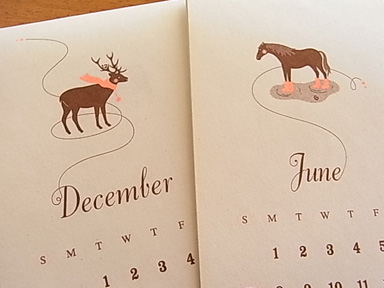 December
S M T W T F
1 2 3 4
June
S M T W T
1 2 3 4 5
8 9 10 11